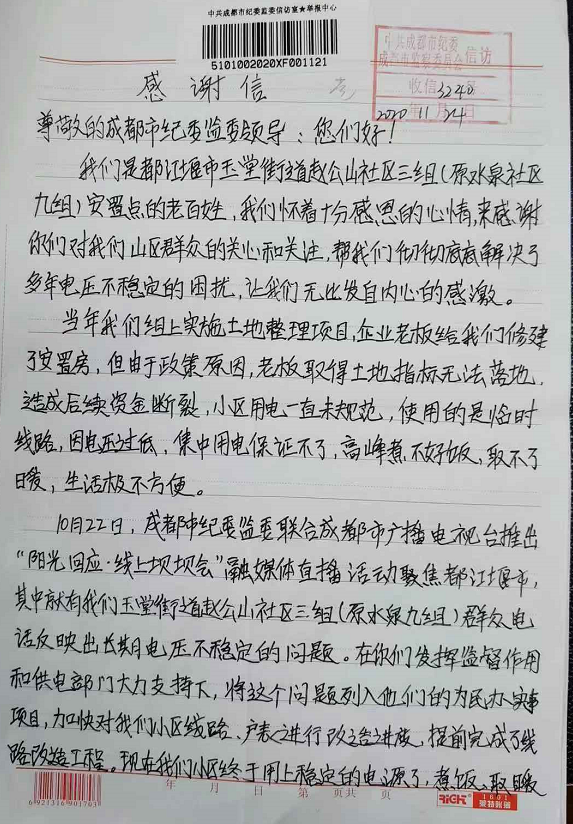 中共成都市纪委监委信访室★举报中心
5101002020XF001121
中共成都市纪委
成都市监察委员会信访
收信3240号
2020年11月24日
感谢信
尊敬的成都市纪委监委领导：您们好！
我们是都江堰市玉堂街道赵公山社区三组（原水泉社区
九组）安置点的老百姓，我们怀着十分感恩的心情，来感谢
你们对我们山区群众的关心和关注，帮我们彻彻底底解决了
多年电压不稳定的困扰，让我们无比发自内心的感激。
当年我们组上实施土地整理项目，企业老板给我们修建
了安置房，但由于政策原因，老板取得土地指标无法落地，
造成后续资金断裂，小区用电一直未规范，使用的是临时
线路，因电压过低，集中用电保证不了，高峰煮不好饭，取不了
暖，生活极不方便。
10月22日，成都市纪委监委联合成都市广播电视台推出
“阳光回应·线上坝坝会”融媒体直播活动聚焦都江堰市，
其中就有我们玉堂街道赵公山社区三组（原水泉九组）群众电
话反映出长期电压不稳定的问题。在你们发挥监督作用
和供电部门大力支持下，将这个问题列入他们的为民办实事
项目，加快对我们小区线路、户表进行改造进度，提前完成了线
路改造工程。现在我们小区终于用上稳定的电源了，煮饭、取暖
年 月 日 第 页共 页
6921316901703
RiCH 1601
莱特账簿